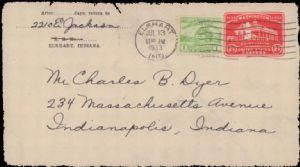 After        days, return to
2210 E. Jackson
ELKHART, INDIANA.
ELKHART
JUL 13
1933
IND.
Mr Charles B. Dyer
234 Massachusetts Avenue
Indianapolis, Indiana